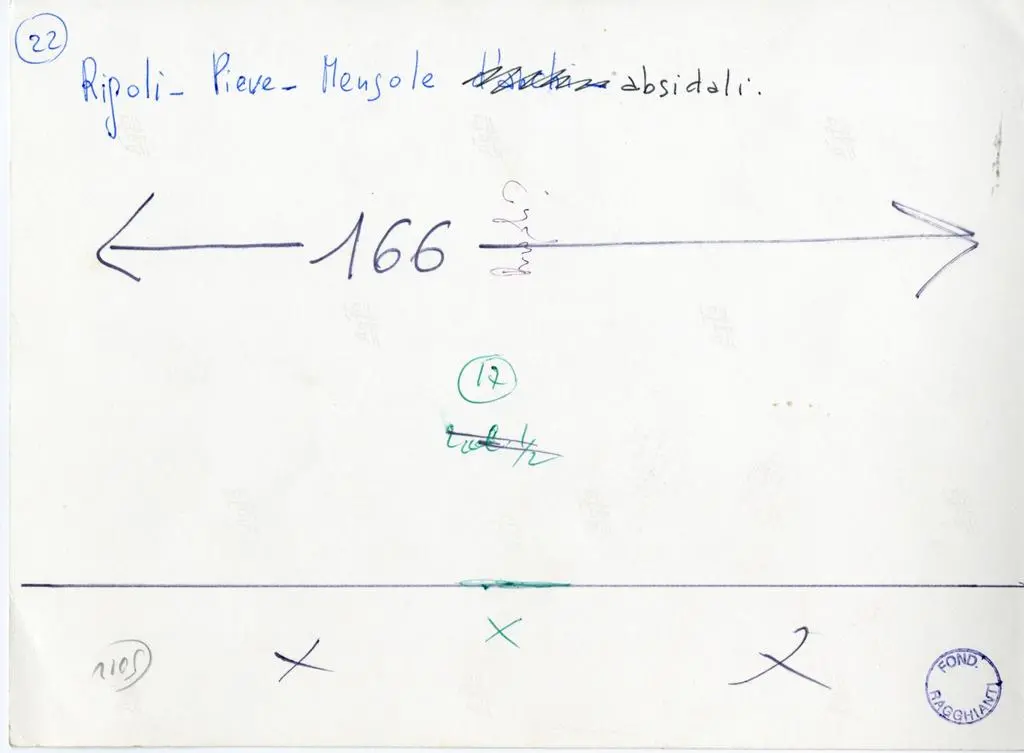 22
Ripoli - Pieve - Mensole absidali.
166
17
1/2
FOND.
RAGGHIANTI